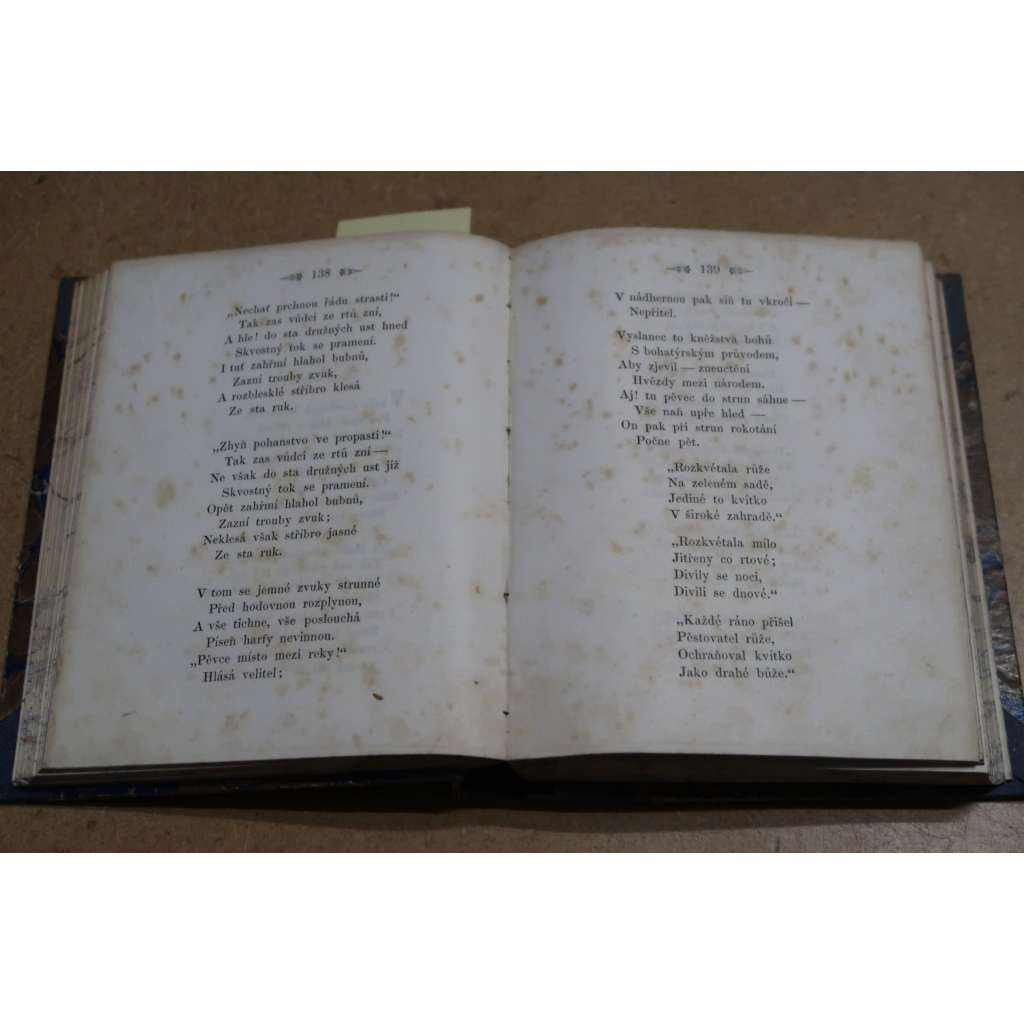 138
„Nechať prchnou řádu strasti!“
Tak zas vůdci ze rtů zní,
A hle! do sta družných ust hned
Skvostný tok se pramení.
I tuť zahřmí hlahol bubnů,
Zazní trouby zvuk,
A rozblesklé stříbro klesá
Ze sta ruk.
„Zhyň pohanstvo ve propasti!“
Tak zas vůdci ze rtů zní —
Ne však do sta družných ust již
Skvostný tok se pramení.
Opět zahřmí hlahol bubnů,
Zazní trouby zvuk;
Neklesá však stříbro jasné
Ze sta ruk.
V tom se jemné zvuky strunné
Před hodovnou rozplynou,
A vše tichne, vše poslouchá
Píseň harfy nevinnou.
„Pěvce místo mezi reky!“
Hlásá velitel;
139
V nádhernou pak síň tu vkročí —
Nepřítel.
Vyslanec to kněžstva bohů
S bohatýrským průvodem,
Aby zjevil — zneuctění
Hvězdy mezi národem.
Aj! tu pěvec do strun sáhne —
Vše naň upře hled —
On pak při strun rokotání
Počne pět.
„Rozkvétala růže
Na zeleném sadě,
Jediné to kvítko
V široké zahradě.“
„Rozkvétala milo
Jitřeny co rtové;
Divily se noci,
Divili se dnové.“
„Každé ráno přišel
Pěstovatel růže,
Ochraňoval kvítko
Jako drahé bůže.“